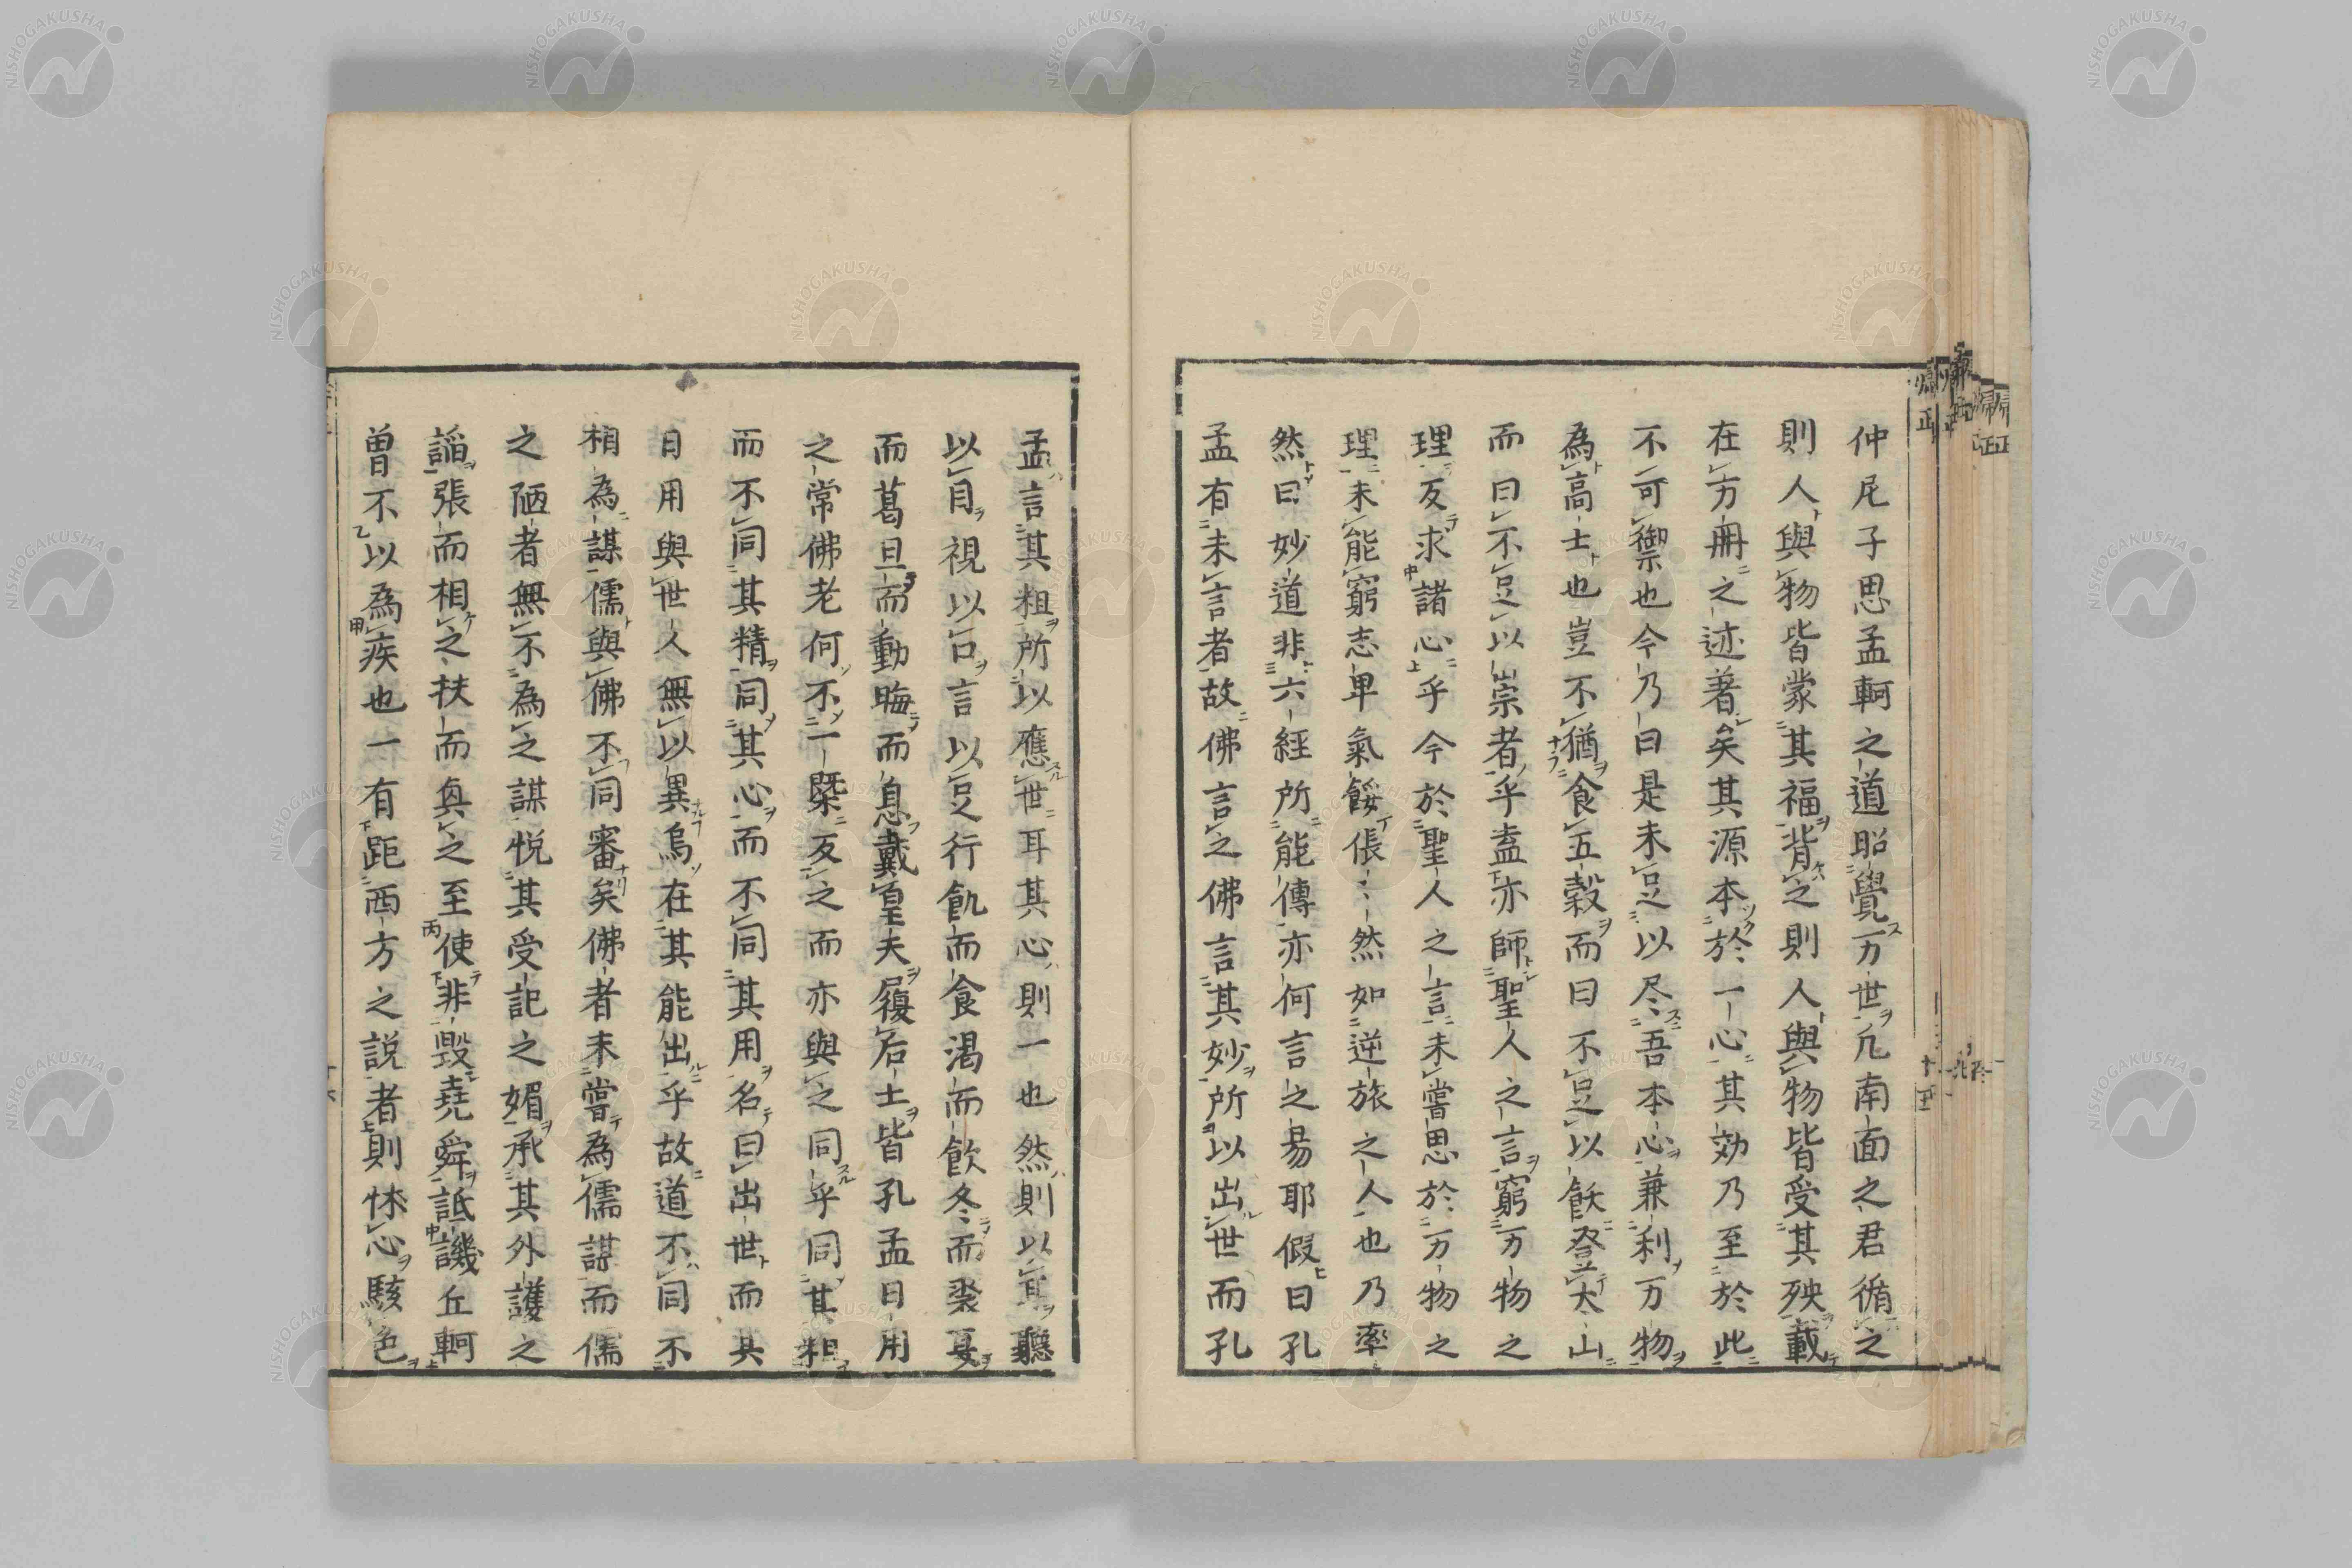 仲尼子思孟軻之道昭覺万世凢南面之君循之
則人與物皆蒙其福背之則人與物皆受其殃載
在方冊之迹著矣其源本於一心其効乃至於此
不可禦也今乃曰是未足以尽吾本心兼利万物
為高士也豈不猶食五穀而曰不足以飫登大山
而曰不足以崇者乎盍亦師聖人之言窮万物之
理反求諸心乎今於聖人之言未嘗思於万物之
理未能窮志卑氣餒倀〻然如逆旅之人也乃率
然曰妙道非六經所能傳亦何言之易耶假曰孔
孟有未言者故佛言之佛言其妙所以出世而孔
孟言其粗所以應世耳其心則一也然則以耳聽
以目視以口言以足行飢而食渇而飲冬而裘夏
而葛旦而動晦而息戴皇天履后土皆孔孟日用
之常佛老何不一槩反之而亦與之同乎同其粗
而不同其精同其心而不同其用名曰出世而其
日用與世人無以異烏在其能出乎故道不同不
相為謀儒與佛不同審矣佛者未嘗為儒謀而儒
之陋者無不為之謀悦其受記之媚承其外護之
謟張而相之扶而興之至使非毀堯舜詆譏丘軻
曽不以為疾也一有距西方之説者則怵心駭色